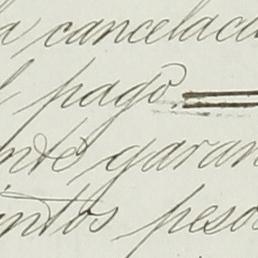 a cancelac
l pago.
nte garan
intos peso